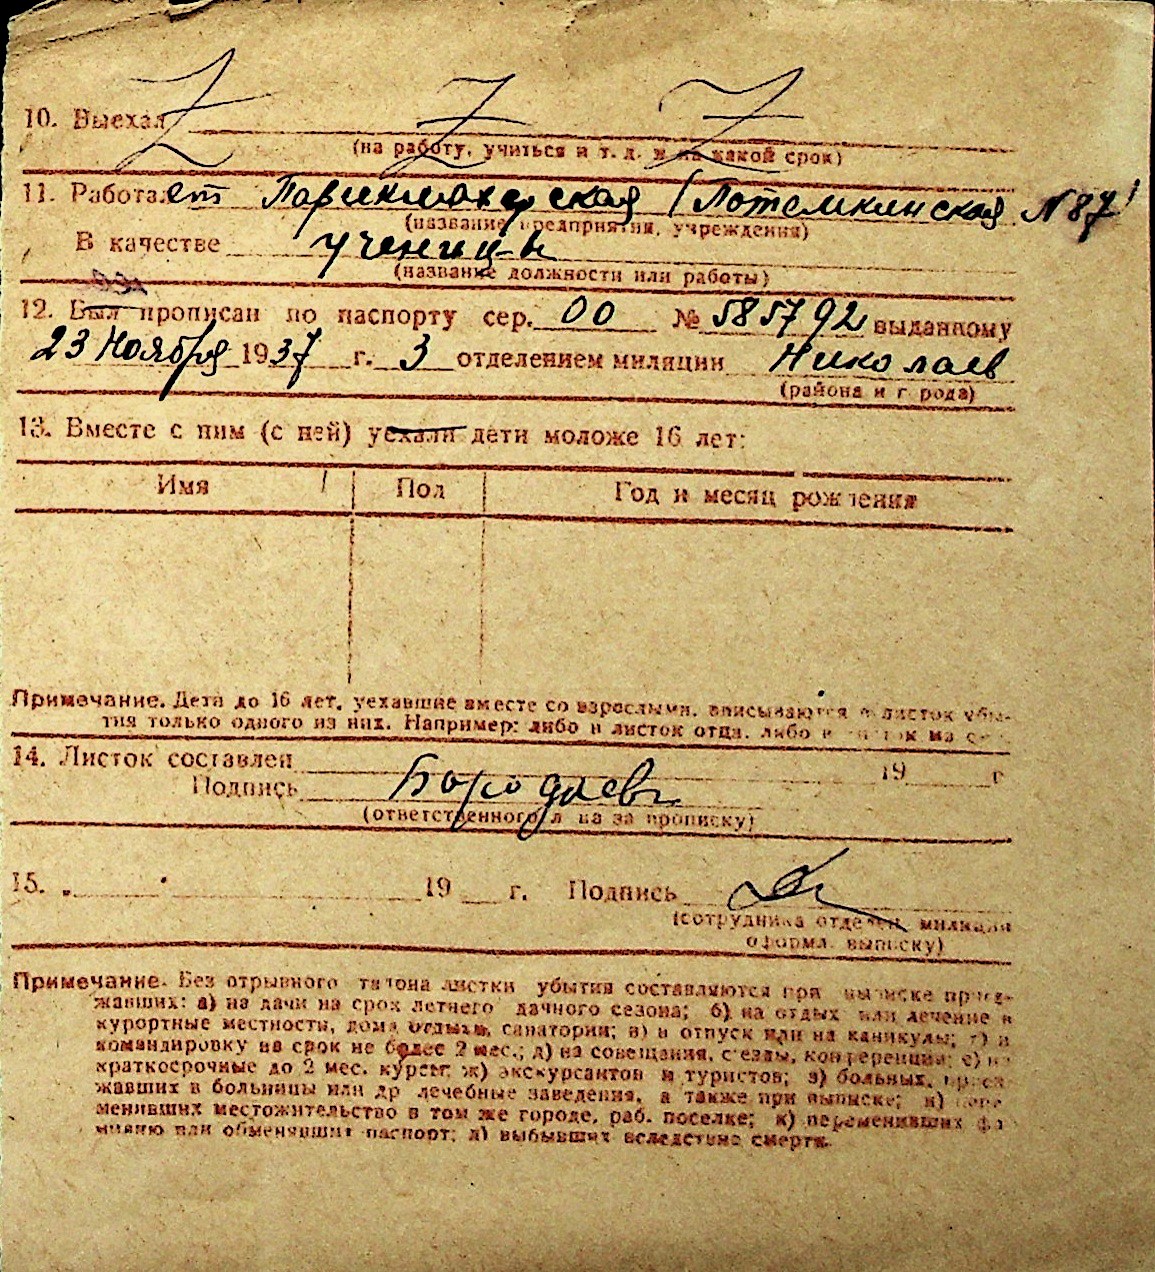 10. Выехал Z Z Z
(на работу, учиться и т. д. и на какой срок)
11. Работает Парикмахерская (Потемкинская №87)
(название предприятия, учреждения)
В качестве ученицы
(название должности или работы)
12. Был прописан по паспорту сер. 00 № 585792 выданному
23 Ноября 1937 г. 3 отделением милиции Николаев
(района и города)
13. Вместе с ним (с ней) уехали дети моложе 16 лет:
Имя Пол Год и месяц рождения
Примечание. Дети до 16 лет, уехавшие вместе со взрослыми, вписываются в листок убы-
тия только одного из них. Например: либо в листок отца, либо в листок
14. Листок составлен 19 г
Подпись
(ответственного лица за прописку)
15. „ " 19 г. Подпись
(сотрудника отделен. милиции
оформл. выписку)
Примечание. Без отрывного талона листки убытия составляются при выписке приез-
жавших: а) на дачи на срок летнего дачного сезона; б) на отдых или лечение в
курортные местности, дома отдыха, санатории; в) в отпуск или на каникулы; г) в
командировку на срок не более 2 мес.; д) на совещания, съезды, конференции; е) на
краткосрочные до 2 мес. курсы; ж) экскурсантов и туристов; з) больных, приез-
жавших в больницы или др лечебные заведения, а также при выписке; и) пере-
менивших местожительство в том же городе, раб. поселке; к) переменивших фа-
милию или обменявших паспорт; л) выбывших вследствие смерти.